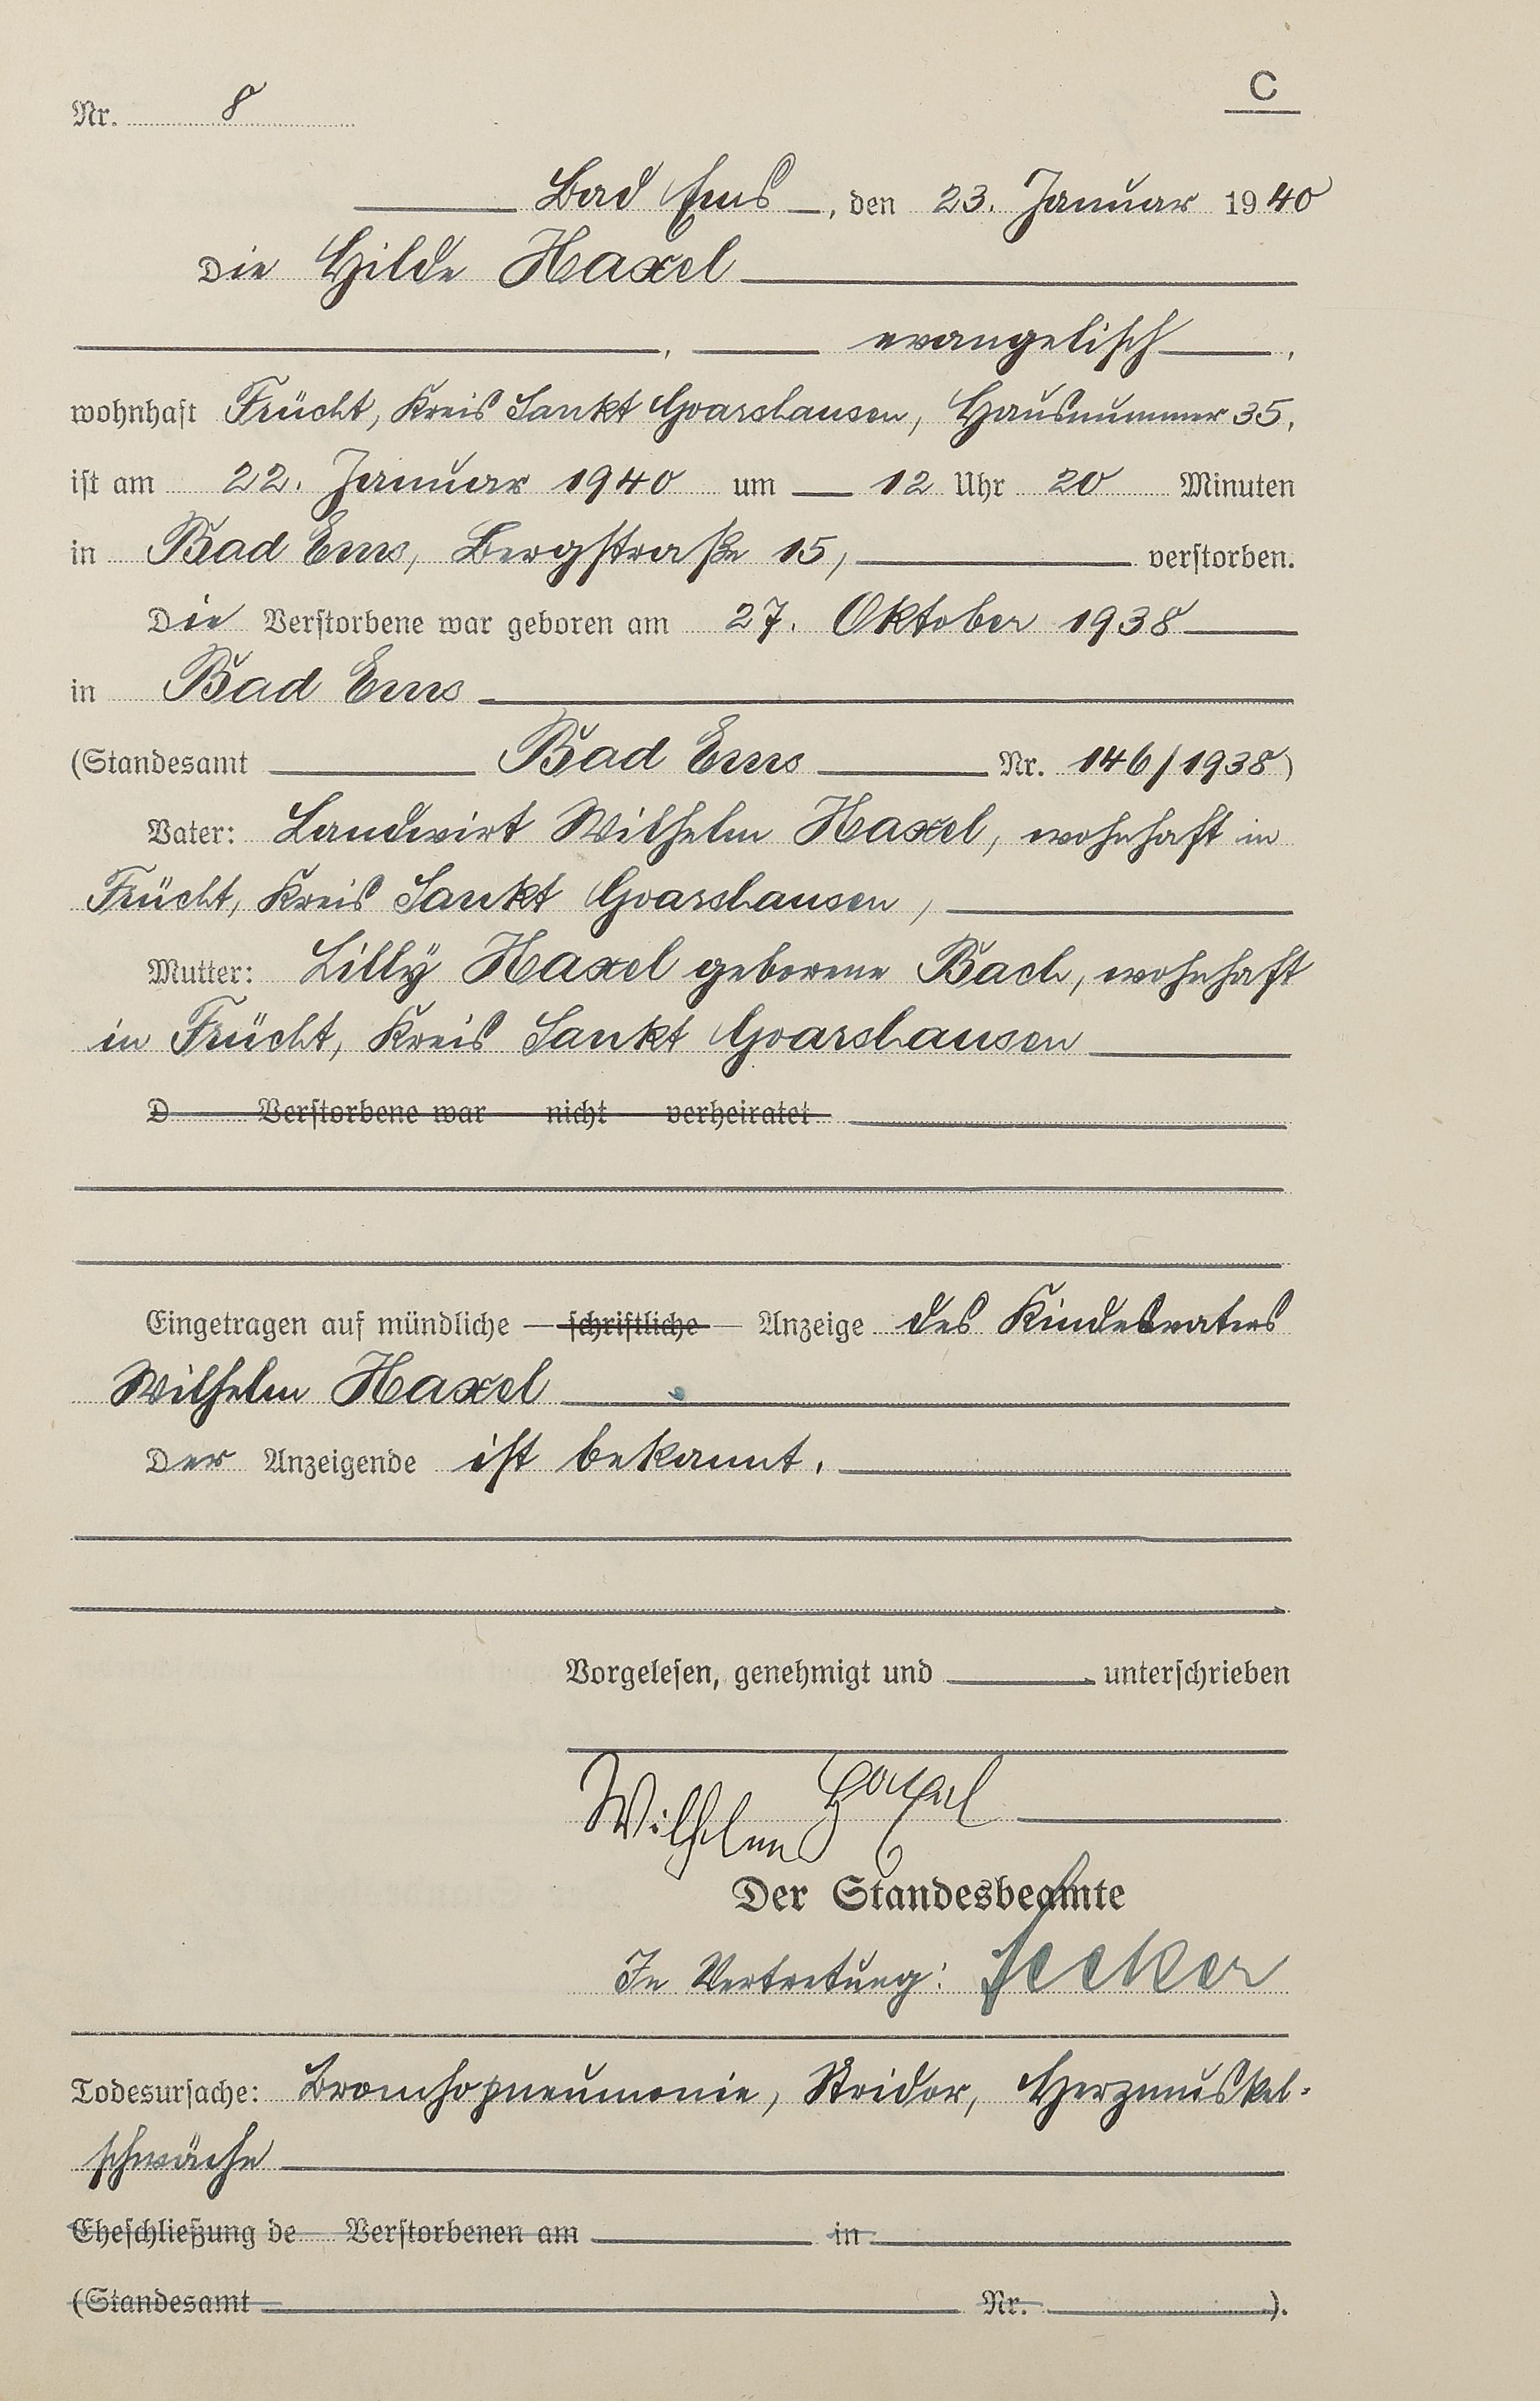 C
Nr. 8
Bad Ems, den 23. Januar 1940
Die Hilde Haxel
, evangelisch,
wohnhaft Frücht, Kreis Sankt Goarshausen, Hausnummer 35,
ist am 22. Januar 1940 um 12 Uhr 20 Minuten
in Bad Ems, Bergstraße 15, verstorben.
Die Verstorbene war geboren am 27. Oktober 1938
in Bad Ems
(Standesamt Bad Ems Nr. 146/1938)
Vater: Landwirt Wilhelm Haxel, wohnhaft in
Frücht, Kreis Sankt Goarshausen,
Mutter: Lilly Haxel geborene Bach, wohnhaft
in Frücht, Kreis Sankt Goarshausen
D Verstorbene war nicht verheiratet
Eingetragen auf mündliche — schriftliche — Anzeige des Kindesvaters
Wilhelm Haxel
Der Anzeigende ist bekannt.
Vorgelesen, genehmigt und unterschrieben
Wilhelm Haxel
Der Standesbeamte
In Vertretung:
Todesursache: Bronchopneumonie, Stridor, Herzmuskel-
schwäche
Eheschließung de Verstorbenen am in
(Standesamt Nr. ).